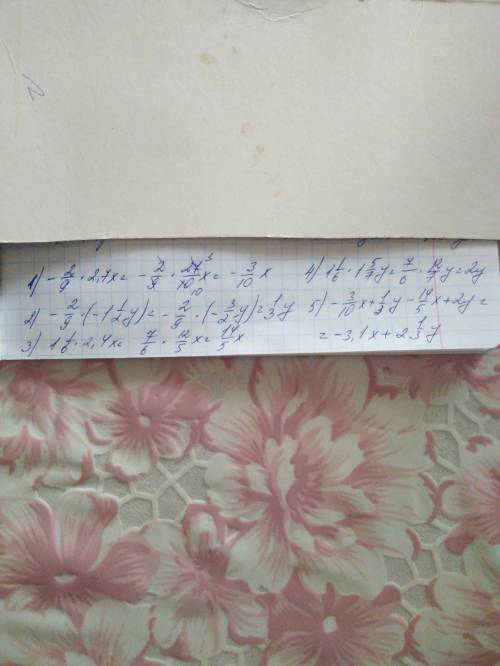 1) -2/9 · 2,7x = -2/9 · 27/10 x = -3/10 x
2) -2/9 · (-1 1/2 y) = -2/9 · (-3/2 y) = 1/3 y
3) 1 1/6 · 2,4x = 7/6 · 12/5 x = 14/5 x
4) 1 1/6 · 1 5/7 y = 7/6 · 12/7 y = 2y
5) -3/10 x + 1/3 y - 14/5 x + 2y =
= -3,1x + 2 1/3 y